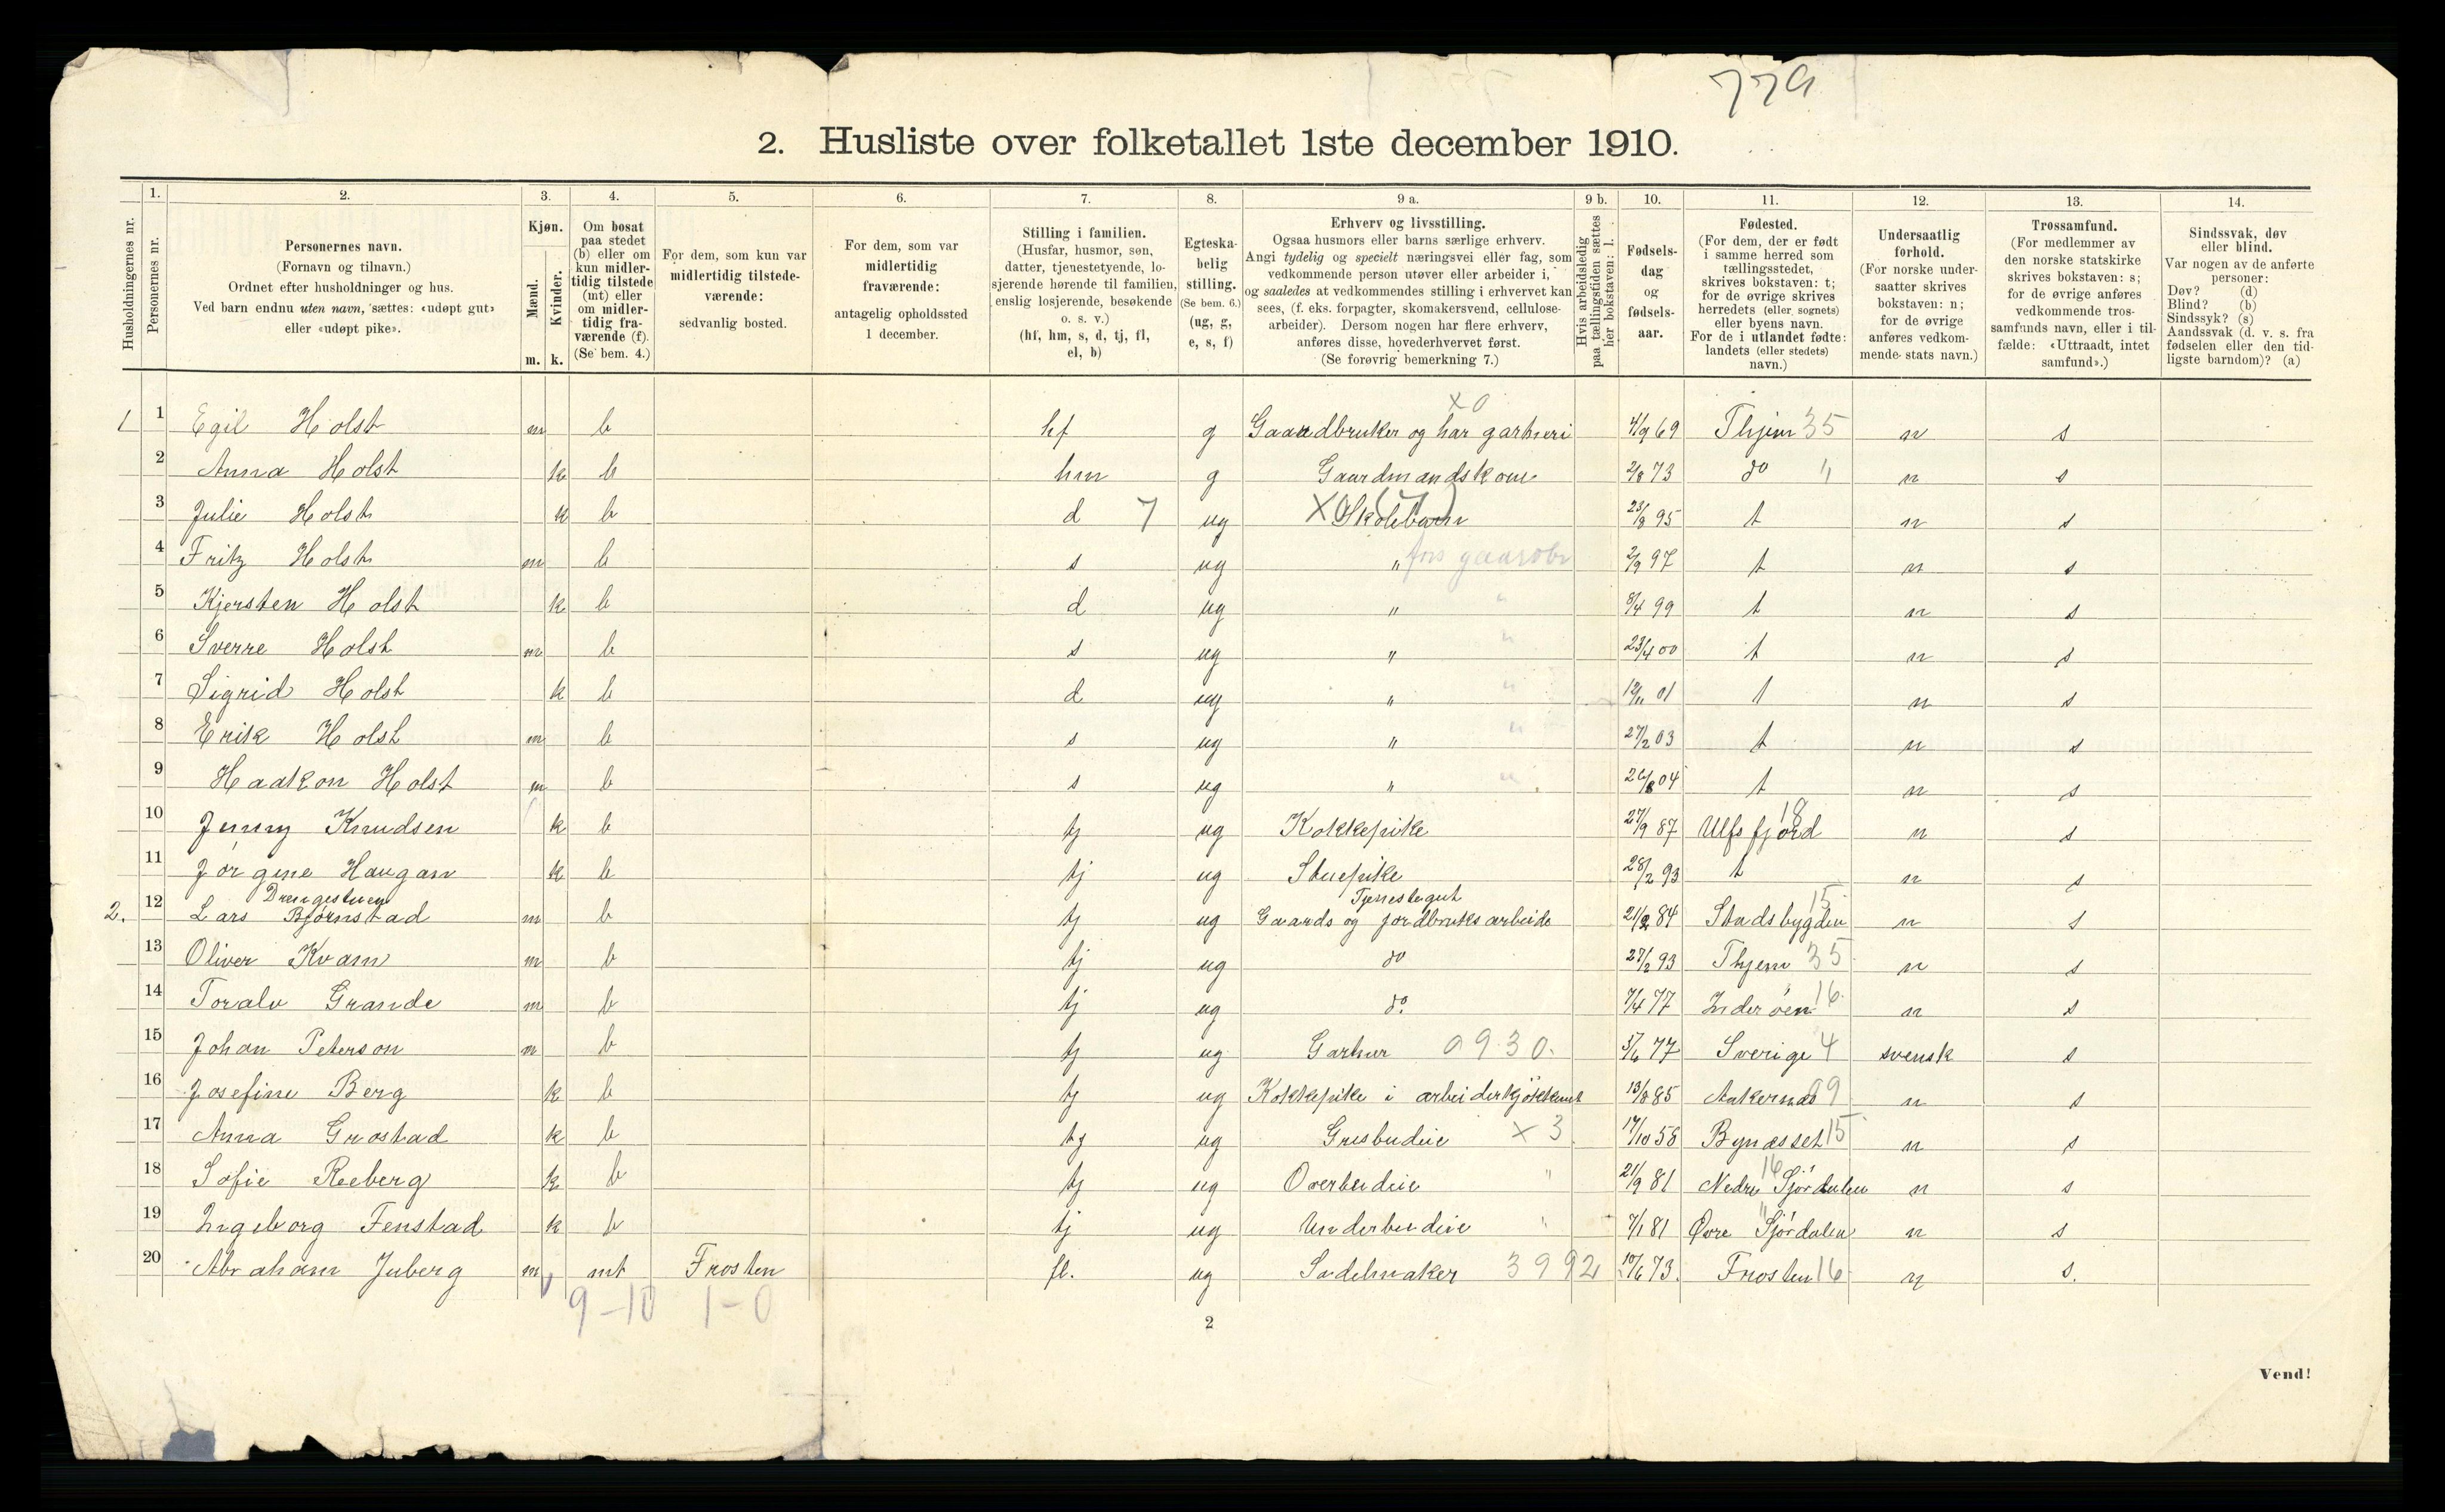 779
2. Husliste over folketallet 1ste december 1910.
Husholdningernes nr.
1. Personernes nr.
2. Personernes navn. (Fornavn og tilnavn.) Ordnet efter husholdninger og hus. Ved barn endnu uten navn, sættes: «udøpt gut» eller «udøpt pike».
3. Kjøn. Mænd. m. Kvinder. k.
4. Om bosat paa stedet (b) eller om kun midlertidig tilstede (mt) eller om midlertidig fraværende (f). (Se bem. 4.)
5. For dem, som kun var midlertidig tilstedeværende: sedvanlig bosted.
6. For dem, som var midlertidig fraværende: antagelig opholdssted 1 december.
7. Stilling i familien. (Husfar, husmor, søn, datter, tjenestetyende, losjerende hørende til familien, enslig losjerende, besøkende o. s. v.) (hf, hm, s, d, tj, fl, el, b)
8. Egteskabelig stilling. (Se bem. 6.) (ug, g, e, s, f)
9 a. Erhverv og livsstilling. Ogsaa husmors eller barns særlige erhverv. Angi tydelig og specielt næringsvei eller fag, som vedkommende person utøver eller arbeider i, og saaledes at vedkommendes stilling i erhvervet kan sees, (f. eks. forpagter, skomakersvend, cellulose-arbeider). Dersom nogen har flere erhverv, anføres disse, hovederhvervet først. (Se forøvrig bemerkning 7.)
9 b. Hvis arbeidsledig paa tællingstiden sættes her bokstaven: l.
10. Fødselsdag og fødselsaar.
11. Fødested. (For dem, der er født i samme herred som tællingsstedet, skrives bokstaven: t; for de øvrige skrives herredets (eller sognets) eller byens navn. For de i utlandet fødte: landets (eller stedets) navn.)
12. Undersaatlig forhold. (For norske undersaatter skrives bokstaven: n; for de øvrige anføres vedkommende stats navn.)
13. Trossamfund. (For medlemmer av den norske statskirke skrives bokstaven: s; for de øvrige anføres vedkommende trossamfunds navn, eller i tilfælde: «Uttraadt, intet samfund».)
14. Sindssvak, døv eller blind. Var nogen av de anførte personer: Døv? (d) Blind? (b) Sindssyk? (s) Aandssvak (d. v. s. fra fødselen eller den tidligste barndom)? (a)
1 1 Egil Holst m b hf g Gaardbruker og har gartneri x0 4/9 69 Thjem 35 n s
2 Anna Holst k b hm g Gaardmandskone 2/8 73 do " n s
3 Julie Holst k b d 7 ug Skolebarn 23/8 95 t n s
4 Fritz Holst m b s ug " fors gaardbr 2/9 97 t n s
5 Kjersten Holst k b d ug " " 8/4 99 t n s
6 Sverre Holst m b s ug " " 23/4 00 t n s
7 Sigrid Holst k b d ug " " 12/11 01 t n s
8 Erik Holst m b s ug " " 27/2 03 t n s
9 Haakon Holst m b s ug " " 26/8 04 t n s
10 Jenny Knudsen k b tj ug Kokkepike 27/9 87 Ulfsfjord 18 n s
11 Jørgine Haugan k b tj ug Stuepike 28/2 93 t n s
2. 12 Drengestuen Lars Bjørnstad m b tj ug Tjenestegut Gaards og jordbruksarbeide 21/2 84 Stadsbygden 15 n s
13 Oliver Kvam m b tj ug do 27/2 93 Thjem 35 n s
14 Toralv Grande m b tj ug do. 7/4 77 Inderøen 16 n s
15 Johan Peterson m b tj ug Gartner 0930. 5/6 77 Sverige 4 svensk s
16 Josefine Berg k b tj ug Kokkepike i arbeiderkjøkkenet 13/8 85 Ankernas 9 n s
17 Anna Grostad k b tj ug Grisbudeie x 3 17/10 58 Bynæsset 15 n s
18 Sofie Reeberg k b tj ug Overbudeie " 21/9 81 Nedre Sjørdalen 16 n s
19 Ingeborg Fenstad k b tj ug Underbudeie " 7/1 81 Øvre Sjørdalen " n s
20 Abraham Juberg m mt Frosten fl. ug Sadelmaker 3992 10/6 73. Frosten 16 n s.
9-10 1-0
2
Vend!